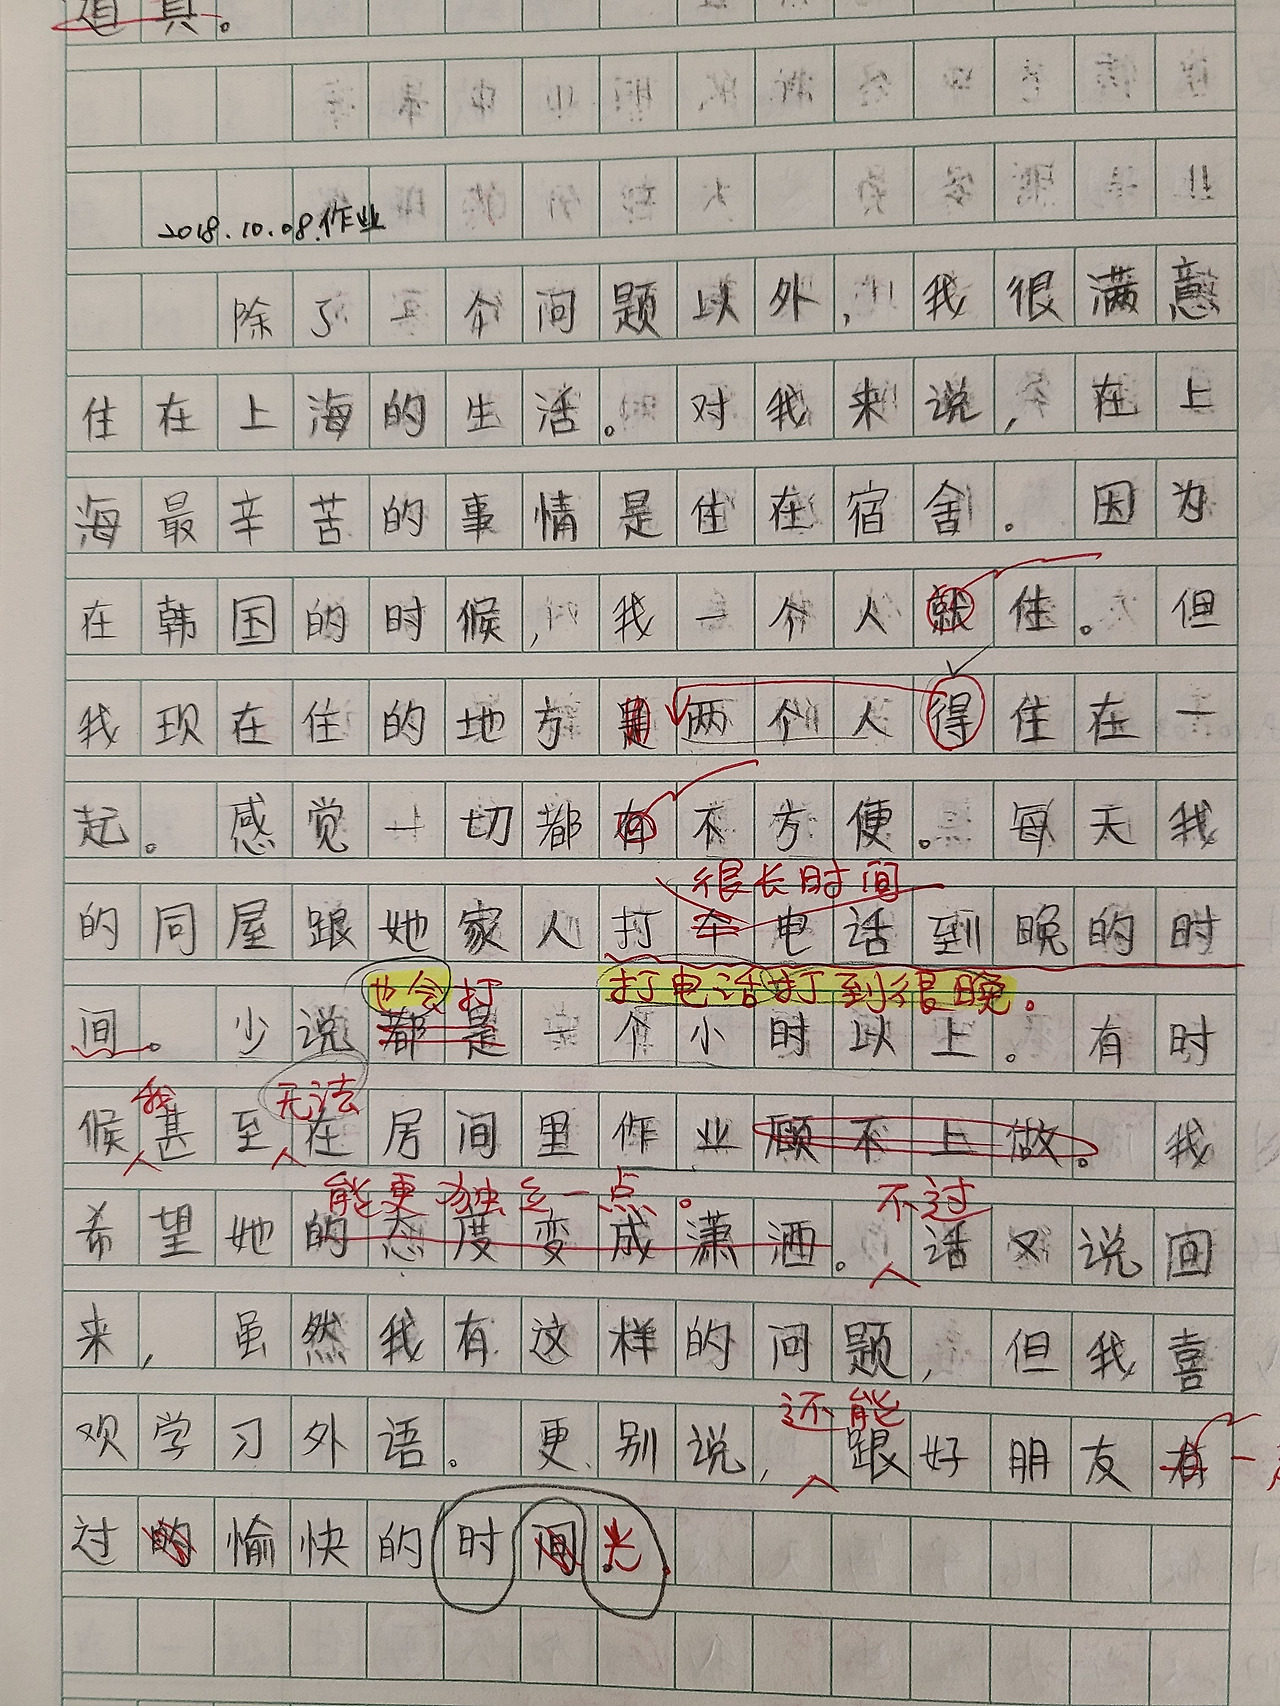 道具。
2018.10.08.作业
除了一个问题以外，我很满意
住在上海的生活。对我来说，在上
海最辛苦的事情是住在宿舍。因为
在韩国的时候，我一个人就住。但
我现在住的地方是两个人得住在一
起。感觉一切都有不方便。每天我
很长时间
的同屋跟她家人打牵电话到晚的时
也会打 打电话打到很晚。
间。少说都是一个小时以上。有时
我 无法
候甚至在居间里作业顾不上做。我
能更独立一点。 不过
希望她的态度变成潇洒。话又说回
来，虽然我有这样的问题，但我喜
还能
欢学习外语。更别说，跟好朋友有一
过的愉快的时间光